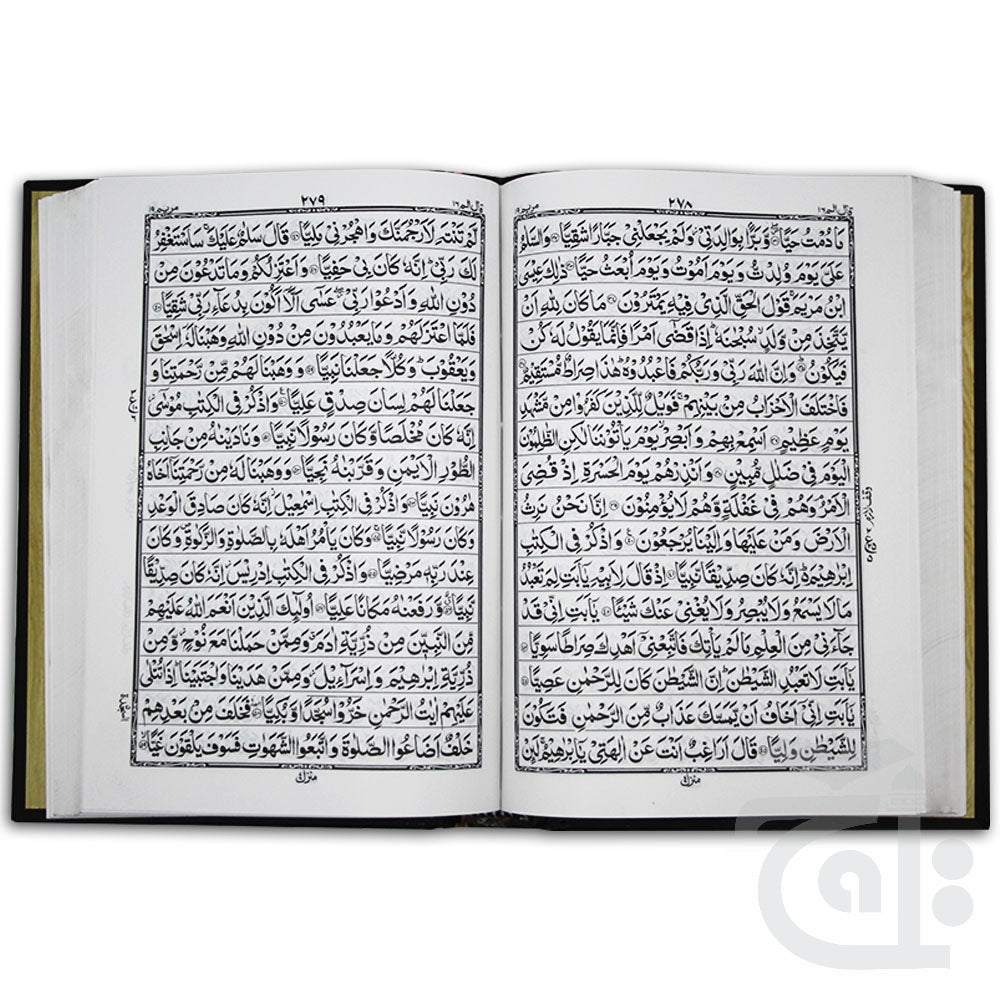 قال الم ١٦
٢٧٨
مريم ١٩
مَا دُمْتُ حَيًّا ۝ وَّبَرًّۢا بِوَالِدَتِيْ وَلَمْ يَجْعَلْنِيْ جَبَّارًا شَقِيًّا ۝ وَالسَّلٰمُ
عَلَيَّ يَوْمَ وُلِدْتُّ وَيَوْمَ اَمُوْتُ وَيَوْمَ اُبْعَثُ حَيًّا ۝ ذٰلِكَ عِيْسَى
ابْنُ مَرْيَمَ قَوْلَ الْحَقِّ الَّذِيْ فِيْهِ يَمْتَرُوْنَ ۝ مَا كَانَ لِلّٰهِ اَنْ
يَّتَّخِذَ مِنْ وَّلَدٍ سُبْحٰنَهٗ اِذَا قَضٰٓى اَمْرًا فَاِنَّمَا يَقُوْلُ لَهٗ كُنْ
فَيَكُوْنُ ۝ وَاِنَّ اللّٰهَ رَبِّيْ وَرَبُّكُمْ فَاعْبُدُوْهُ هٰذَا صِرَاطٌ مُّسْتَقِيْمٌ ۝
فَاخْتَلَفَ الْاَحْزَابُ مِنْۢ بَيْنِهِمْ فَوَيْلٌ لِّلَّذِيْنَ كَفَرُوْا مِنْ مَّشْهَدِ
يَوْمٍ عَظِيْمٍ ۝ اَسْمِعْ بِهِمْ وَاَبْصِرْ يَوْمَ يَاْتُوْنَنَا لٰكِنِ الظّٰلِمُوْنَ
الْيَوْمَ فِيْ ضَلٰلٍ مُّبِيْنٍ ۝ وَاَنْذِرْهُمْ يَوْمَ الْحَسْرَةِ اِذْ قُضِيَ
الْاَمْرُ وَهُمْ فِيْ غَفْلَةٍ وَّهُمْ لَا يُؤْمِنُوْنَ ۝ اِنَّا نَحْنُ نَرِثُ
الْاَرْضَ وَمَنْ عَلَيْهَا وَاِلَيْنَا يُرْجَعُوْنَ ۝ وَاذْكُرْ فِي الْكِتٰبِ
اِبْرٰهِيْمَ اِنَّهٗ كَانَ صِدِّيْقًا نَّبِيًّا ۝ اِذْ قَالَ لِاَبِيْهِ يٰٓاَبَتِ لِمَ تَعْبُدُ
مَا لَا يَسْمَعُ وَلَا يُبْصِرُ وَلَا يُغْنِيْ عَنْكَ شَيْـًٔا ۝ يٰٓاَبَتِ اِنِّيْ قَدْ
جَآءَنِيْ مِنَ الْعِلْمِ مَا لَمْ يَاْتِكَ فَاتَّبِعْنِيْٓ اَهْدِكَ صِرَاطًا سَوِيًّا ۝
يٰٓاَبَتِ لَا تَعْبُدِ الشَّيْطٰنَ اِنَّ الشَّيْطٰنَ كَانَ لِلرَّحْمٰنِ عَصِيًّا ۝
يٰٓاَبَتِ اِنِّيْٓ اَخَافُ اَنْ يَّمَسَّكَ عَذَابٌ مِّنَ الرَّحْمٰنِ فَتَكُوْنَ
لِلشَّيْطٰنِ وَلِيًّا ۝ قَالَ اَرَاغِبٌ اَنْتَ عَنْ اٰلِهَتِيْ يٰٓاِبْرٰهِيْمُ لَئِنْ
منزل
قال الم ١٦
٢٧٩
مريم ١٩
لَّمْ تَنْتَهِ لَاَرْجُمَنَّكَ وَاهْجُرْنِيْ مَلِيًّا ۝ قَالَ سَلٰمٌ عَلَيْكَ سَاَسْتَغْفِرُ
لَكَ رَبِّيْ اِنَّهٗ كَانَ بِيْ حَفِيًّا ۝ وَاَعْتَزِلُكُمْ وَمَا تَدْعُوْنَ مِنْ
دُوْنِ اللّٰهِ وَاَدْعُوْا رَبِّيْ عَسٰٓى اَلَّآ اَكُوْنَ بِدُعَآءِ رَبِّيْ شَقِيًّا ۝
فَلَمَّا اعْتَزَلَهُمْ وَمَا يَعْبُدُوْنَ مِنْ دُوْنِ اللّٰهِ وَهَبْنَا لَهٗٓ اِسْحٰقَ
وَيَعْقُوْبَ وَكُلًّا جَعَلْنَا نَبِيًّا ۝ وَوَهَبْنَا لَهُمْ مِّنْ رَّحْمَتِنَا وَ
جَعَلْنَا لَهُمْ لِسَانَ صِدْقٍ عَلِيًّا ۝ وَاذْكُرْ فِي الْكِتٰبِ مُوْسٰٓى
اِنَّهٗ كَانَ مُخْلَصًا وَّكَانَ رَسُوْلًا نَّبِيًّا ۝ وَنَادَيْنٰهُ مِنْ جَانِبِ
الطُّوْرِ الْاَيْمَنِ وَقَرَّبْنٰهُ نَجِيًّا ۝ وَوَهَبْنَا لَهٗ مِنْ رَّحْمَتِنَآ اَخَاهُ
هٰرُوْنَ نَبِيًّا ۝ وَاذْكُرْ فِي الْكِتٰبِ اِسْمٰعِيْلَ اِنَّهٗ كَانَ صَادِقَ الْوَعْدِ
وَكَانَ رَسُوْلًا نَّبِيًّا ۝ وَكَانَ يَاْمُرُ اَهْلَهٗ بِالصَّلٰوةِ وَالزَّكٰوةِ وَكَانَ
عِنْدَ رَبِّهٖ مَرْضِيًّا ۝ وَاذْكُرْ فِي الْكِتٰبِ اِدْرِيْسَ اِنَّهٗ كَانَ صِدِّيْقًا
نَّبِيًّا ۝ وَّرَفَعْنٰهُ مَكَانًا عَلِيًّا ۝ اُولٰٓئِكَ الَّذِيْنَ اَنْعَمَ اللّٰهُ عَلَيْهِمْ
مِّنَ النَّبِيّٖنَ مِنْ ذُرِّيَّةِ اٰدَمَ وَمِمَّنْ حَمَلْنَا مَعَ نُوْحٍ وَّمِنْ
ذُرِّيَّةِ اِبْرٰهِيْمَ وَاِسْرَآءِيْلَ وَمِمَّنْ هَدَيْنَا وَاجْتَبَيْنَا اِذَا تُتْلٰى
عَلَيْهِمْ اٰيٰتُ الرَّحْمٰنِ خَرُّوْا سُجَّدًا وَّبُكِيًّا ۝ فَخَلَفَ مِنْۢ بَعْدِهِمْ
خَلْفٌ اَضَاعُوا الصَّلٰوةَ وَاتَّبَعُوا الشَّهَوٰتِ فَسَوْفَ يَلْقَوْنَ غَيًّا ۝
منزل
السجدة